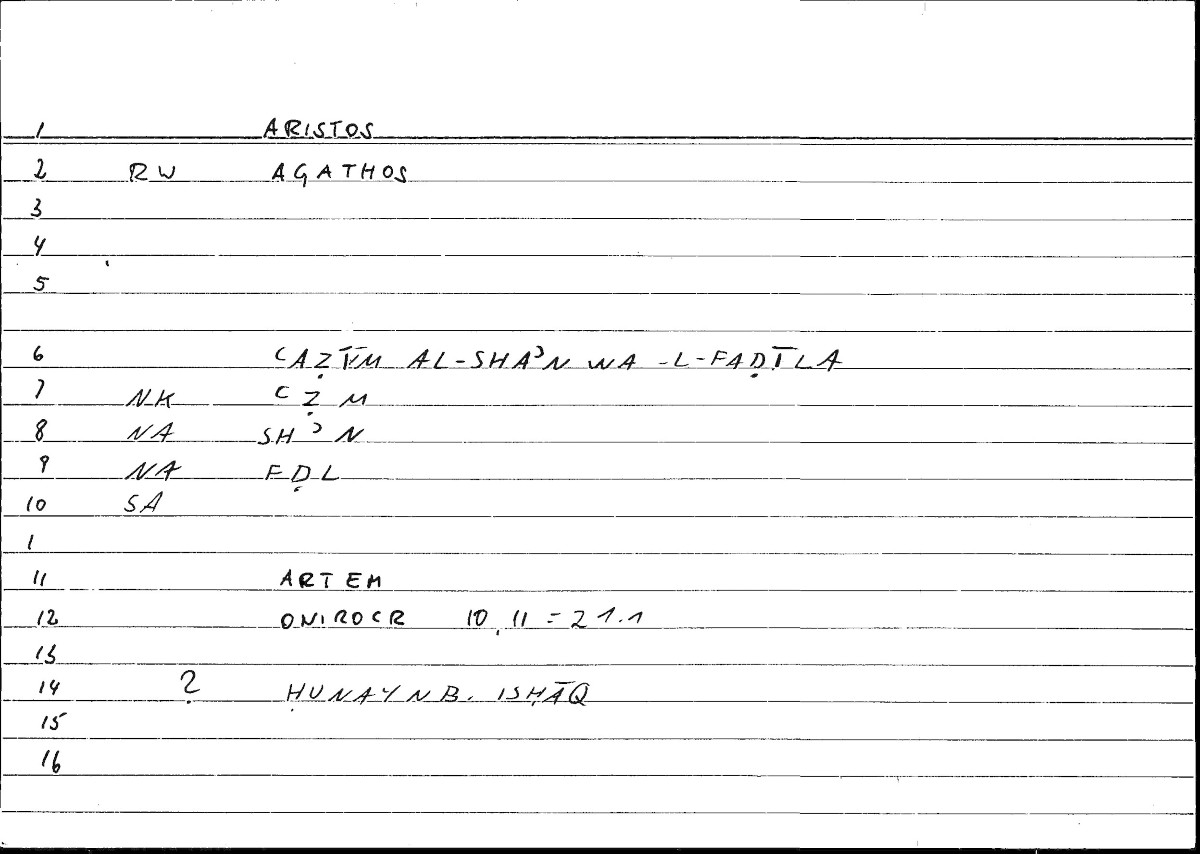 1 ARISTOS
2 RW AGATHOS
3
4
5
6 ʿAẒĪM AL-SHAʾN WA-L-FAḌĪLA
7 NK ʿẒM
8 NA SHʾN
9 NA FḌL
10 SA
1
11 ARTEM
12 ONIROCR 10,11 = 21.1
13
14 ? ḤUNAYN B. ISḤĀQ
15
16